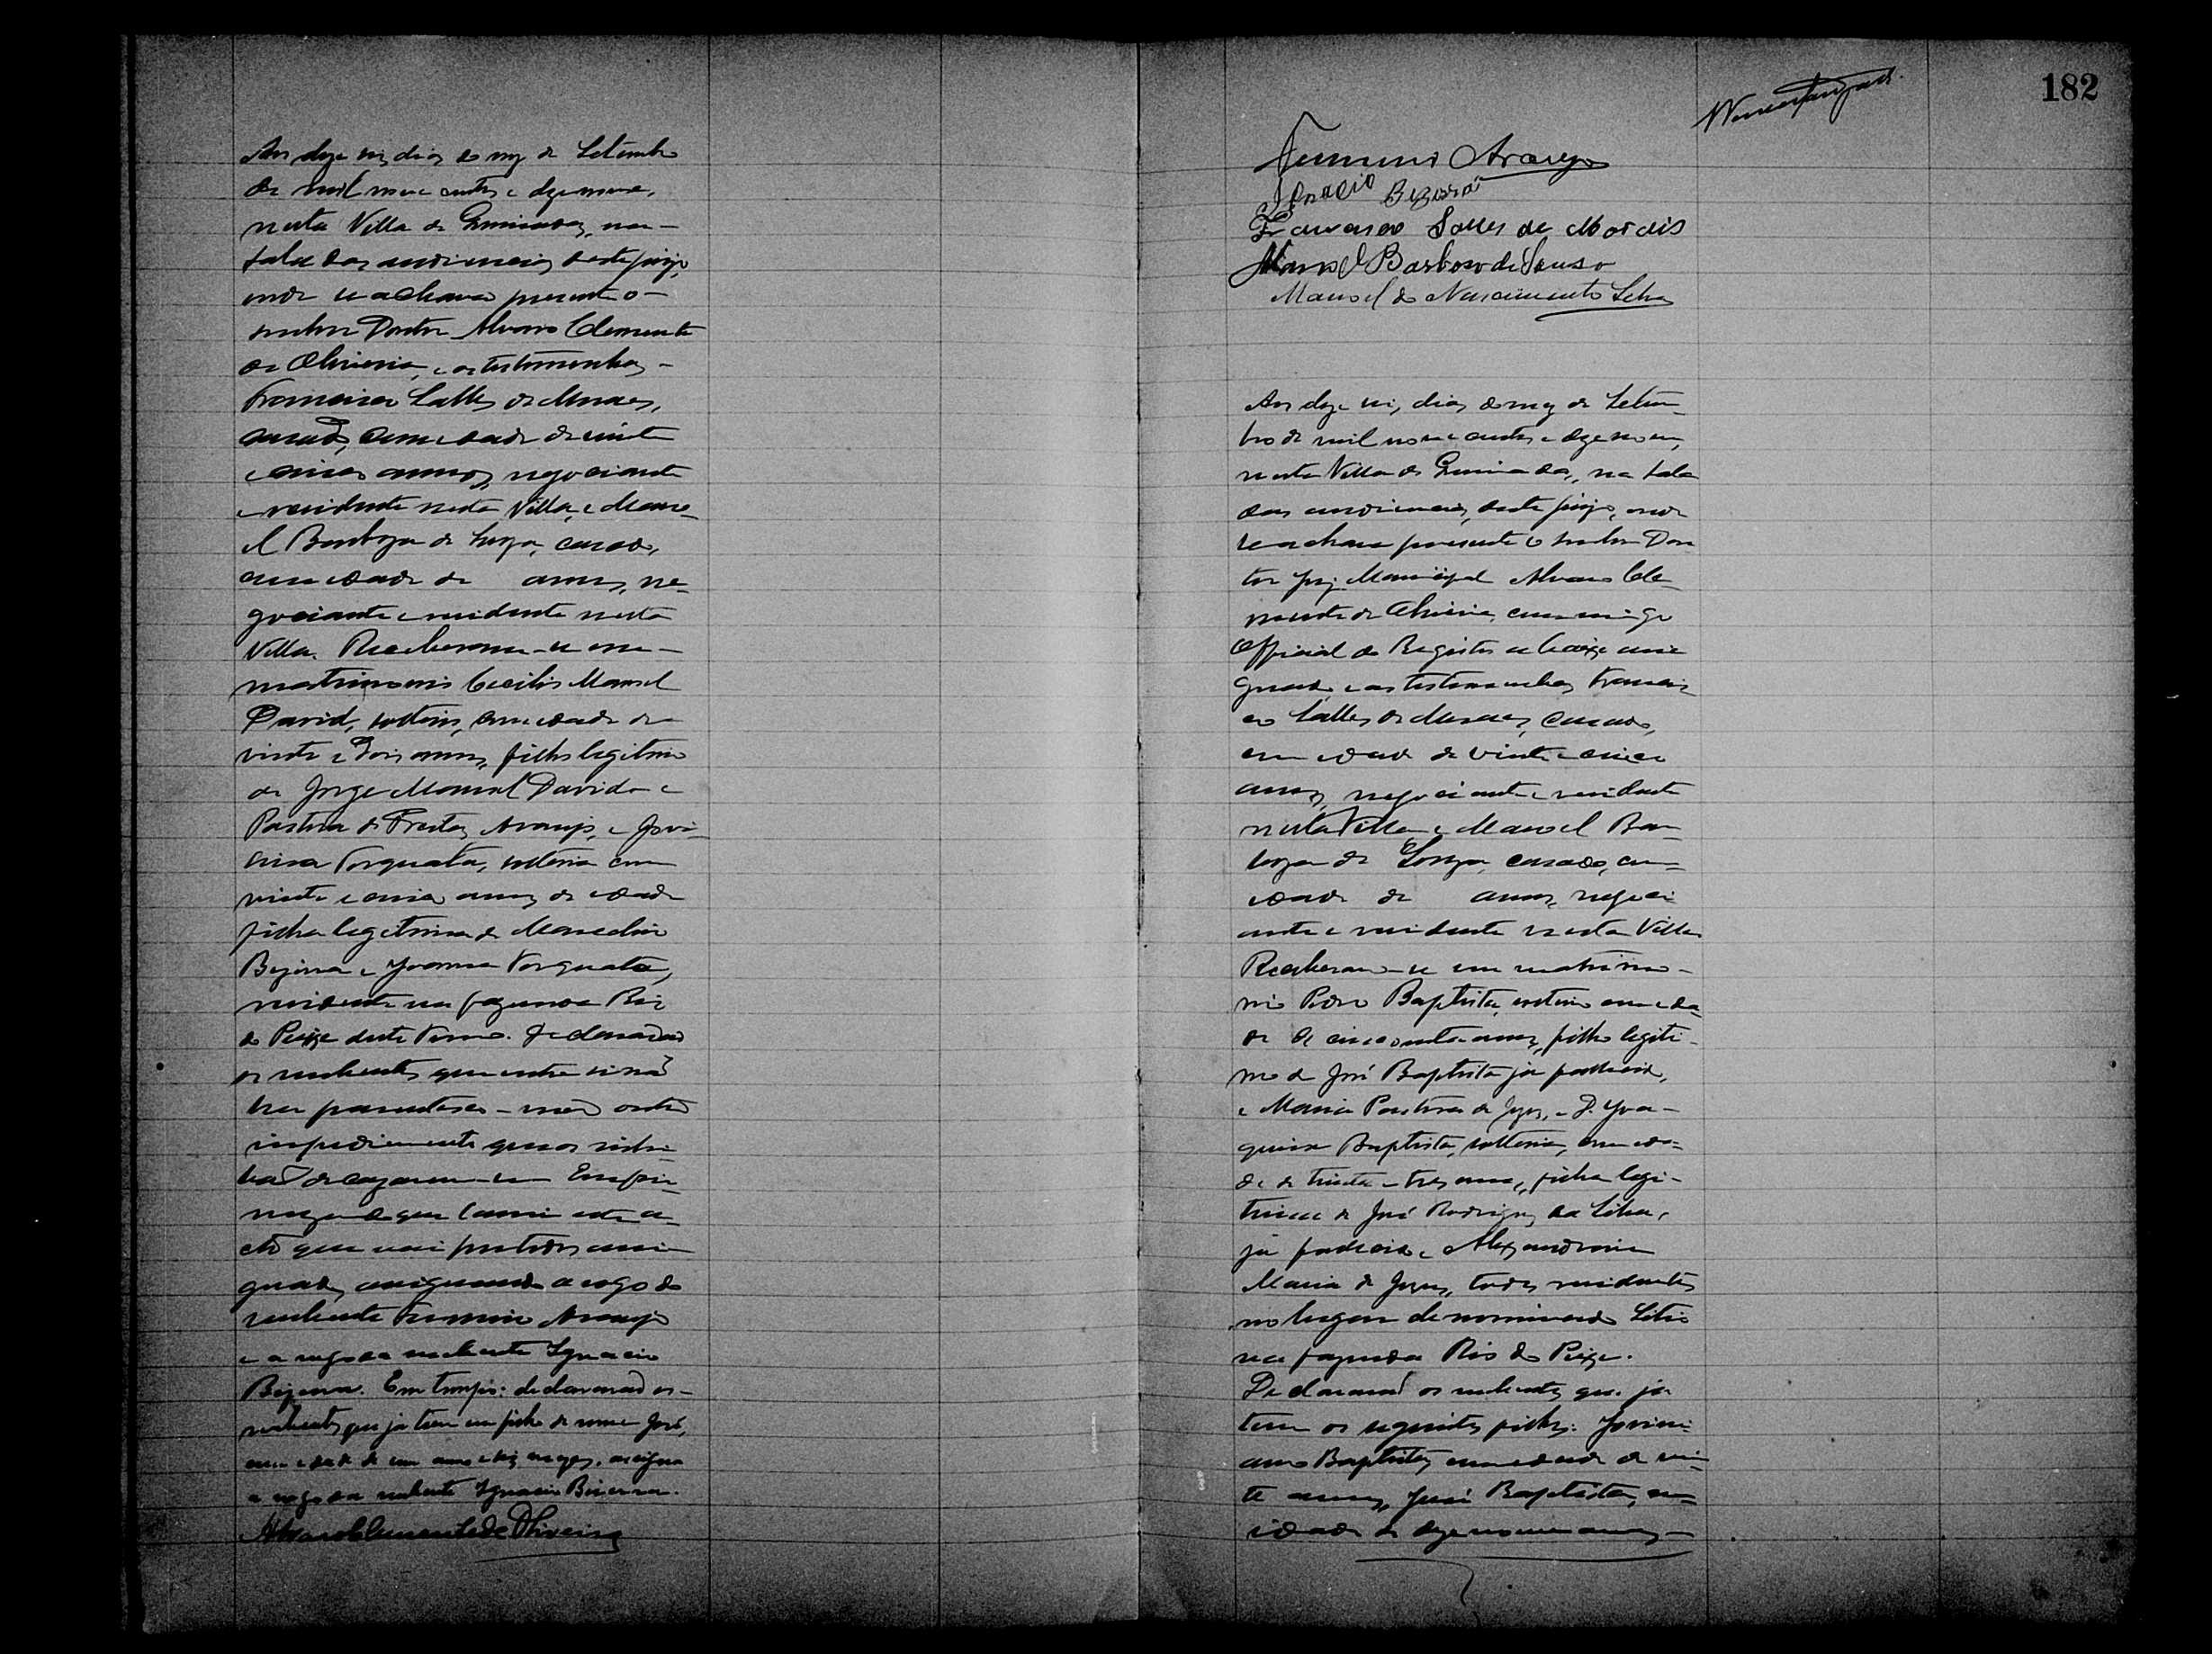 Aos doze seis dias do mez de Setembro
de mil nove centos e dezenove,
nesta Villa de Queimadas, na
sala das audiencias deste juizo,
onde se achava presente o
senhor Doutor Alvaro Clemente
de Oliveira, e as testemunhas
Francisco Salles de Moraes,
casado, com idade de vinte
e cinco annos, negociante
e residente nesta Villa, e Mano-
el Barboza de Souza, casado,
com idade de annos, ne-
gociante e residente nesta
Villa. Receberam-se em
matrimonio Cecilio Manoel
David, solteiro, com idade de
vinte e dois annos, filho legitimo
de Jorge Manoel David e
Pastora de Freitas Araujo, e Jovi-
Torquata, solteira com
vinte e cinco annos de idade
filha legitima de Marcelino
Bezerra e Joanna Torquata,
residente na fazenda Rio
do Peixe deste Termo. Declararaõ
os nubentes que entre si naõ
ha parentesco nem outro
impedimento que os inhi-
baõ de cazarem-se. Em fir-
meza do que lavrei este a-
cto que vai por todos assi-
gnado, assignando a rogo do
nubente Firmino Araujo
e a rogo da nubente Ignacio
Bezerra. Em tempo: declararaõ os
nubentes que ja tem um filho de nome José,
com idade de um anno e dez mezes, assigna
a rogo da nubente Ignacio Bezerra.
Alvaro Clemente de Oliveira
182
Firmino Araujo
Ignacio Bezerra
Francisco Salles de Morais
Manoel Barboso de Souso
Manoel do Nascimento Silva
Aos doze seis dias do mez de Setem-
bro de mil nove centos e dezenove,
nesta Villa de Queimadas, na sala
das audiencias deste juizo, onde
se achava presente o senhor Dou
tor Juiz Municipal Alvaro Cle-
mente de Oliveira, commigo
Official do Registro abaixo assi
gnado e as testemunhas Francis
co Salles de Moraes, casado,
com idade de vinte e cinco
annos, negociante e residente
nesta Villa e Manoel Bar
boza de Souza, casado, com
idade de annos, negoci
ante e residente nesta Villa
Receberam-se em matrimo-
nio Pedro Baptista, solteiro com ida
de de cincoenta annos, filho legiti-
mo de José Baptista ja fallecido,
e Maria Pastora de Jezus, e D. Joa-
quina Baptista, solteira, com ida-
de de trinta e tres annos, filha legi-
tima de José Rodrigues da Silva,
já fallecido e Alexandrina
Maria de Jezus, todos residentes
no lugar denominado Sitio
na fazenda Rio do Peixe.
Declararaõ os nubentes que ja
tem os seguintes filhos: Jovini-
ano Baptista, com idade de vin-
te annos, José Baptista, com
idade de dezenove annos